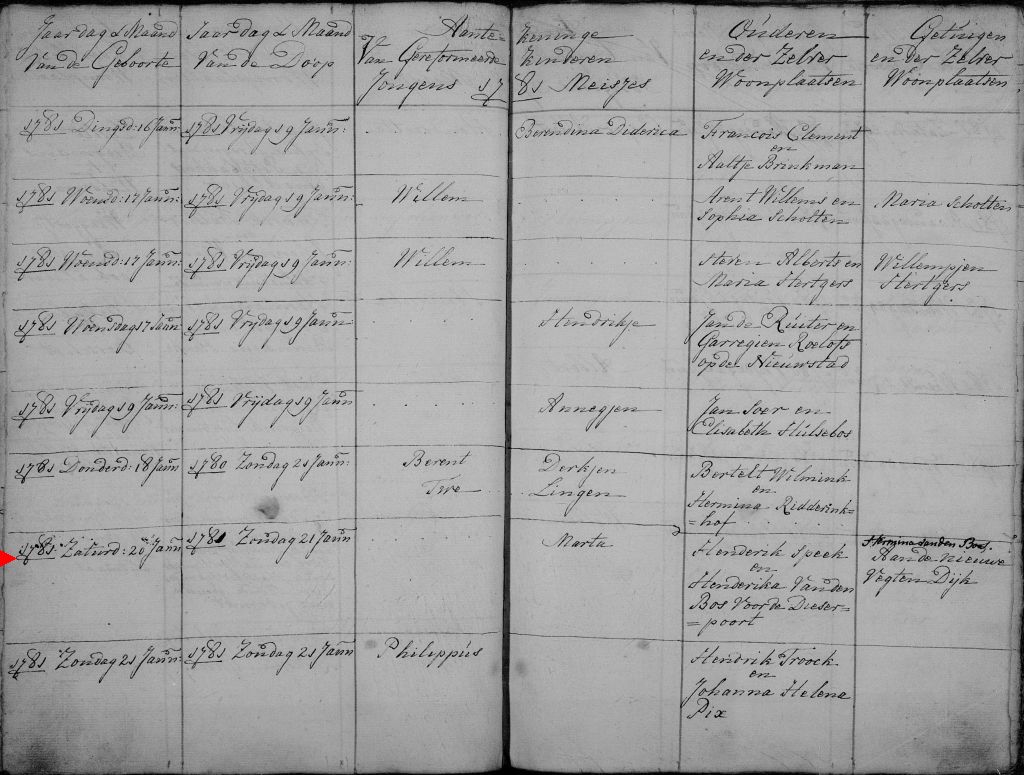 Jaar dag & Maand
Van de Geboorte
Jaar dag & Maand
Van de Doop
Aante=
Van Gereformeerde
Jongens 17
keninge
kinderen
81 Meisjes
Ouderen
en der Zelver
Woonplaatsen
Getuigen
en der Zelver
Woonplaatsen
1781 Dingsd: 16 Januu 1781 Vrijdag 19 Januu: Berendina Diderica Francois Clement
en
Aaltje Brinkman
1781 Woensd: 17 Januu: 1781 Vrijdag 19 Januu: Willem Arent Willems en Maria Scholten
Sophia Scholten
1781 Woensd: 17 Januu: 1781 Vrijdag 19 Januu: Willem Steven Alberts en Willempjen
Maria Hertgers Hertgers
1781 Woensdag 17 Januu 1781 Vrijdag 19 Januu: Hendrikje Jan de Ruiter en
Garregien Roelofs
op de Nieuwstad
1781 Vrijdag 19 Januu: 1781 Vrijdag 19 Januu Annegjen Jan Soer en
Elisabeth Hulsebos
1781 Donderd: 18 Januu 1780 Zondag 21 Januu: Berent Derkjen Bertelt Wilmink
Twe Lingen en
Hermina Ridderink=
=hof
1781 Zaturd: 20 Januu 1781 Zondag 21 Januu Marta Henderik Speek Hermina van den Bos.
en Aan de Nieuwe
Henderika Van den Vegten Dyk
Bos Voor de Dieser=
=poort
1781 Zondag 21 Januu: 1781 Zondag 21 Januu Philippus Hendrik Troock
en
Johanna Helena
Pix